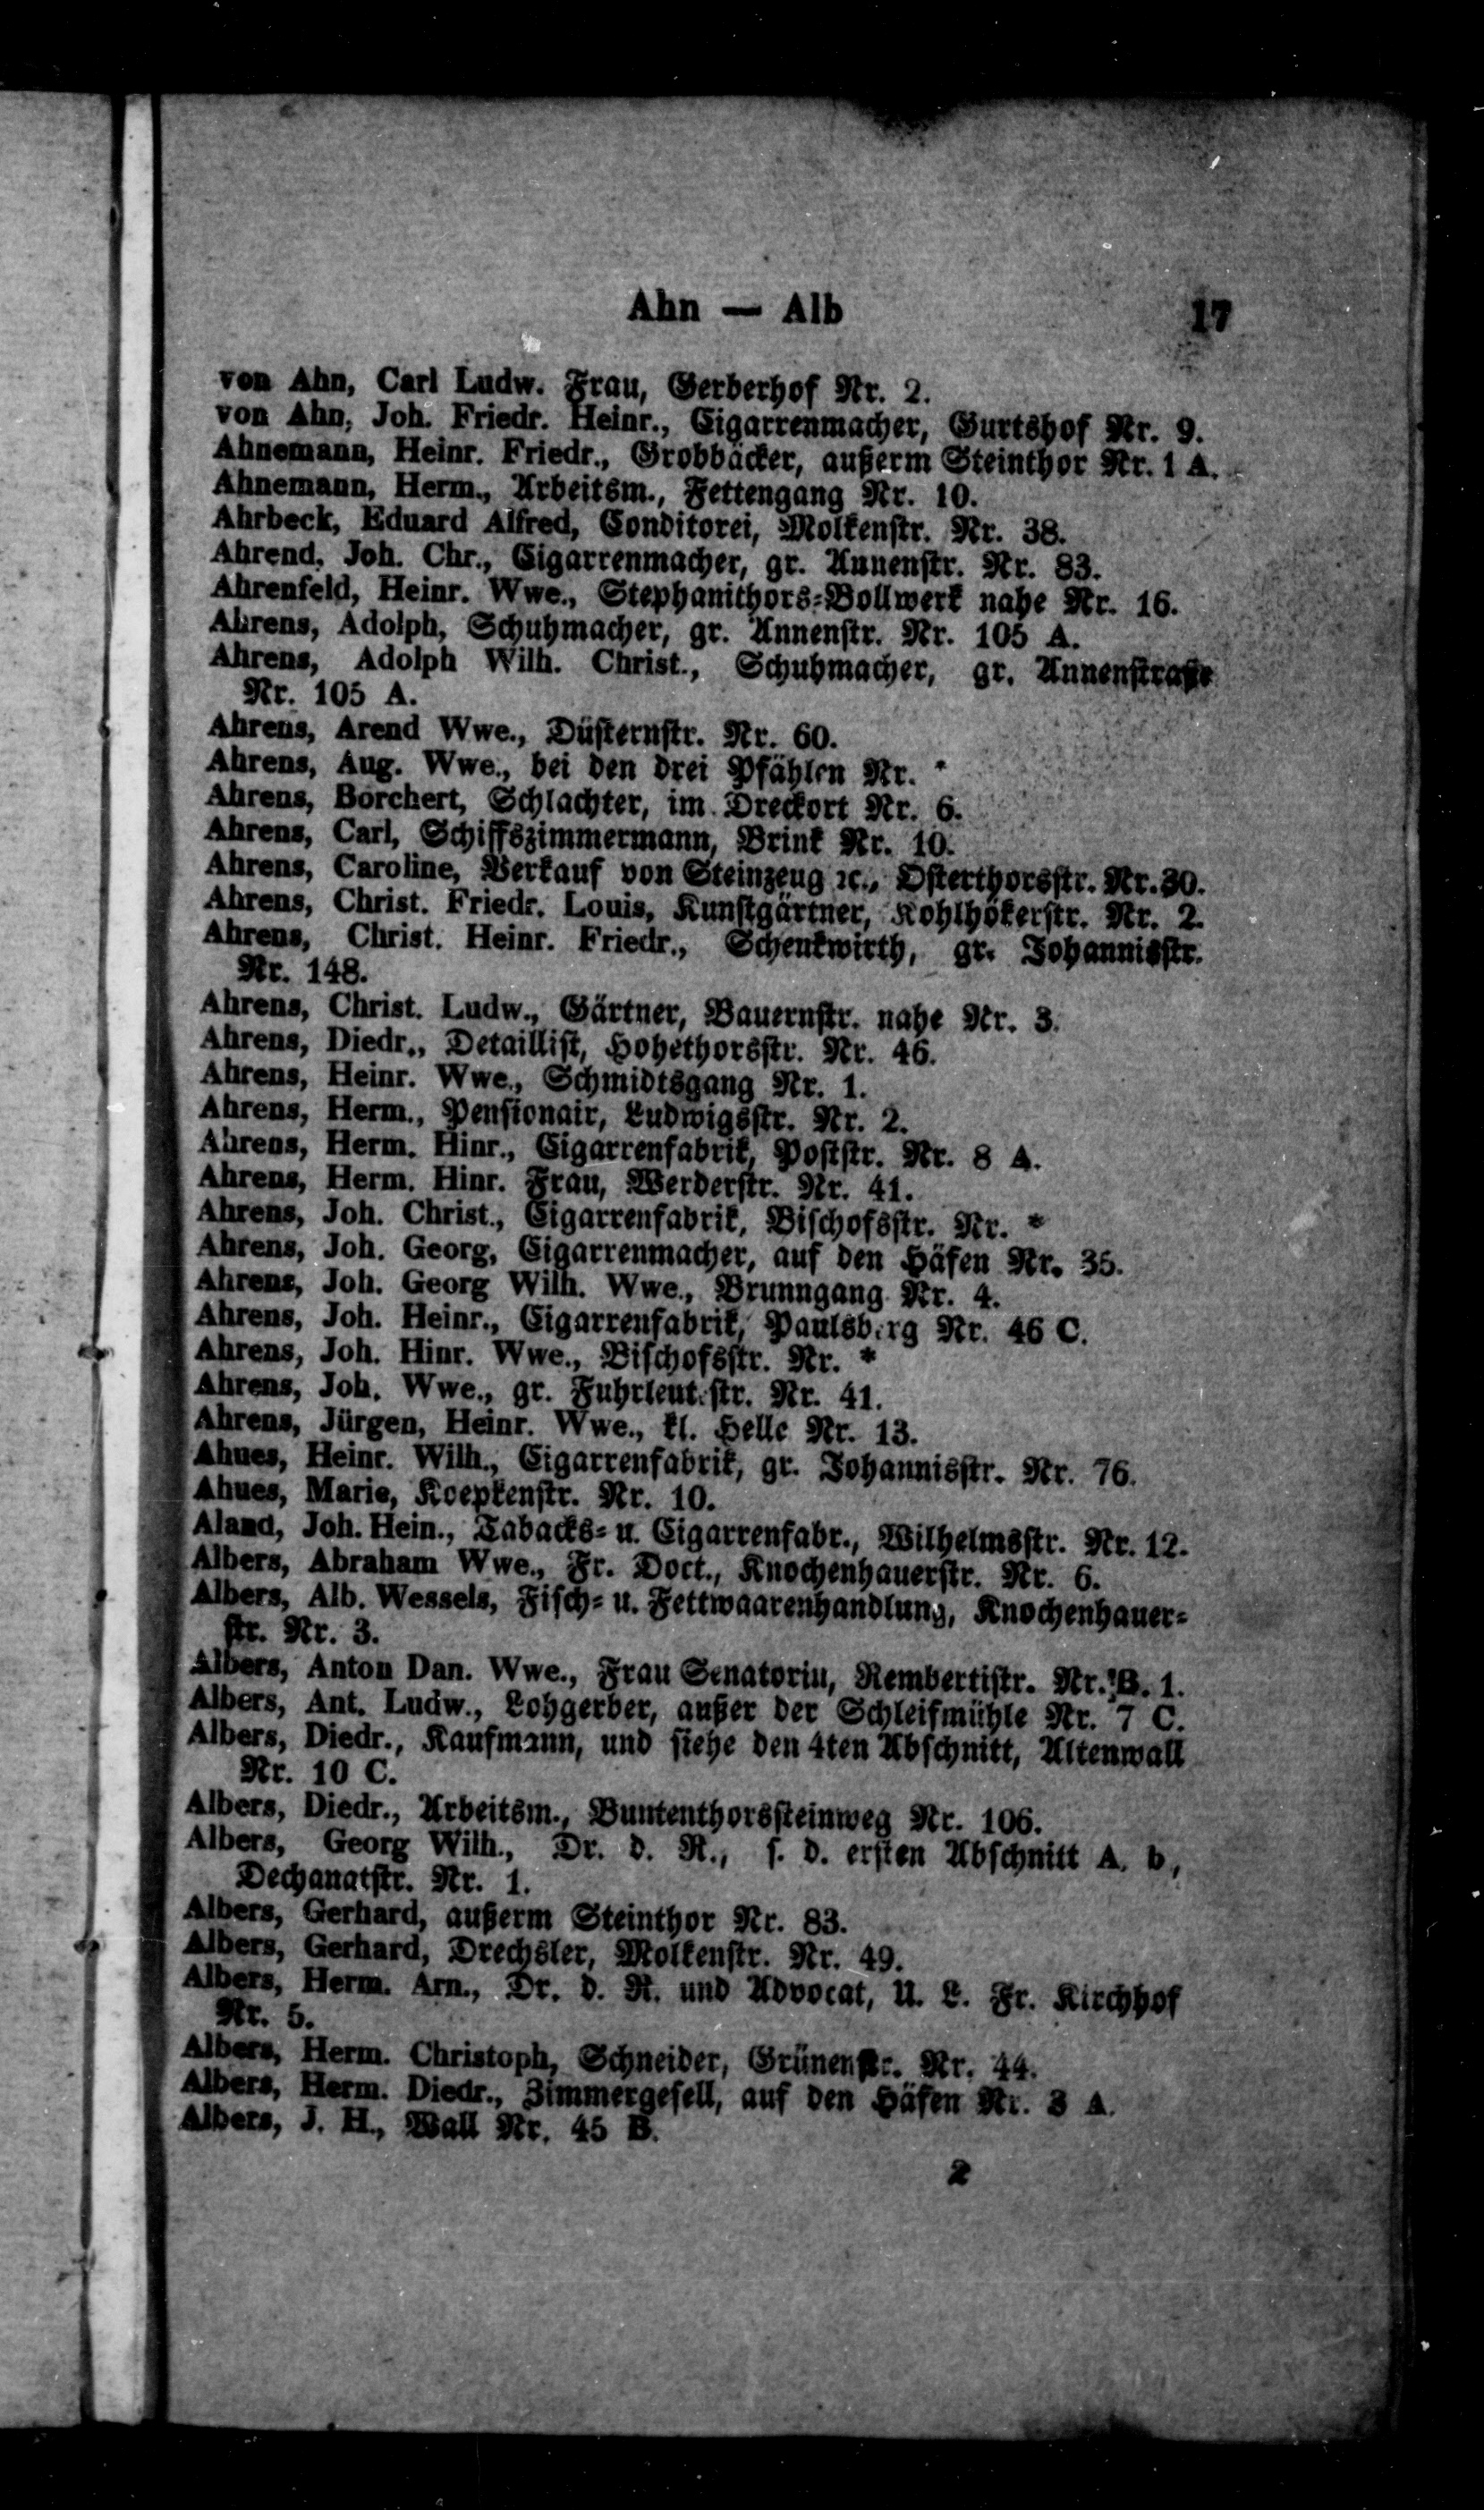 Ahn — Alb 17
von Ahn, Carl Ludw. Frau, Gerberhof Nr. 2.
von Ahn, Joh. Friedr. Heinr., Cigarrenmacher, Gurtshof Nr. 9.
Ahnemann, Heinr. Friedr., Grobbäcker, außerm Steinthor Nr. 1 A.
Ahnemann, Herm., Arbeitsm., Fettengang Nr. 10.
Ahrbeck, Eduard Alfred, Conditorei, Molkenstr. Nr. 38.
Ahrend, Joh. Chr., Cigarrenmacher, gr. Annenstr. Nr. 83.
Ahrenfeld, Heinr. Wwe., Stephanithors-Bollwerk nahe Nr. 16.
Ahrens, Adolph, Schuhmacher, gr. Annenstr. Nr. 105 A.
Ahrens, Adolph Wilh. Christ., Schuhmacher, gr. Annenstraße
Nr. 105 A.
Ahrens, Arend Wwe., Düsternstr. Nr. 60.
Ahrens, Aug. Wwe., bei den drei Pfählen Nr. *
Ahrens, Borchert, Schlachter, im Dreckort Nr. 6.
Ahrens, Carl, Schiffszimmermann, Brink Nr. 10.
Ahrens, Caroline, Verkauf von Steinzeug ꝛc., Osterthorsstr. Nr. 30.
Ahrens, Christ. Friedr. Louis, Kunstgärtner, Kohlhökerstr. Nr. 2.
Ahrens, Christ. Heinr. Friedr., Schenkwirth, gr. Johannisstr.
Nr. 148.
Ahrens, Christ. Ludw., Gärtner, Bauernstr. nahe Nr. 3.
Ahrens, Diedr., Detaillist, Hohethorsstr. Nr. 46.
Ahrens, Heinr. Wwe., Schmidtsgang Nr. 1.
Ahrens, Herm., Pensionair, Ludwigsstr. Nr. 2.
Ahrens, Herm. Hinr., Cigarrenfabrik, Poststr. Nr. 8 A.
Ahrens, Herm. Hinr. Frau, Werderstr. Nr. 41.
Ahrens, Joh. Christ., Cigarrenfabrik, Bischofsstr. Nr. *
Ahrens, Joh. Georg, Cigarrenmacher, auf den Häfen Nr. 35.
Ahrens, Joh. Georg Wilh. Wwe., Brunngang Nr. 4.
Ahrens, Joh. Heinr., Cigarrenfabrik, Paulsberg Nr. 46 C.
Ahrens, Joh. Hinr. Wwe., Bischofsstr. Nr. *
Ahrens, Joh. Wwe., gr. Fuhrleutestr. Nr. 41.
Ahrens, Jürgen, Heinr. Wwe., kl. Helle Nr. 13.
Ahues, Heinr. Wilh., Cigarrenfabrik, gr. Johannisstr. Nr. 76.
Ahues, Marie, Koepkenstr. Nr. 10.
Aland, Joh. Hein., Tabacks- u. Cigarrenfabr., Wilhelmsstr. Nr. 12.
Albers, Abraham Wwe., Fr. Doct., Knochenhauerstr. Nr. 6.
Albers, Alb. Wessels, Fisch- u. Fettwaarenhandlung, Knochenhauer-
str. Nr. 3.
Albers, Anton Dan. Wwe., Frau Senatorin, Rembertistr. Nr. B. 1.
Albers, Ant. Ludw., Lohgerber, außer der Schleifmühle Nr. 7 C.
Albers, Diedr., Kaufmann, und siehe den 4ten Abschnitt, Altenwall
Nr. 10 C.
Albers, Diedr., Arbeitsm., Buntenthorssteinweg Nr. 106.
Albers, Georg Wilh., Dr. d. R., s. d. ersten Abschnitt A. b,
Dechanatstr. Nr. 1.
Albers, Gerhard, außerm Steinthor Nr. 83.
Albers, Gerhard, Drechsler, Molkenstr. Nr. 49.
Albers, Herm. Arn., Dr. d. R. und Advocat, U. L. Fr. Kirchhof
Nr. 5.
Albers, Herm. Christoph, Schneider, Grünenstr. Nr. 44.
Albers, Herm. Diedr., Zimmergesell, auf den Häfen Nr. 3 A.
Albers, J. H., Wall Nr. 45 B.
2